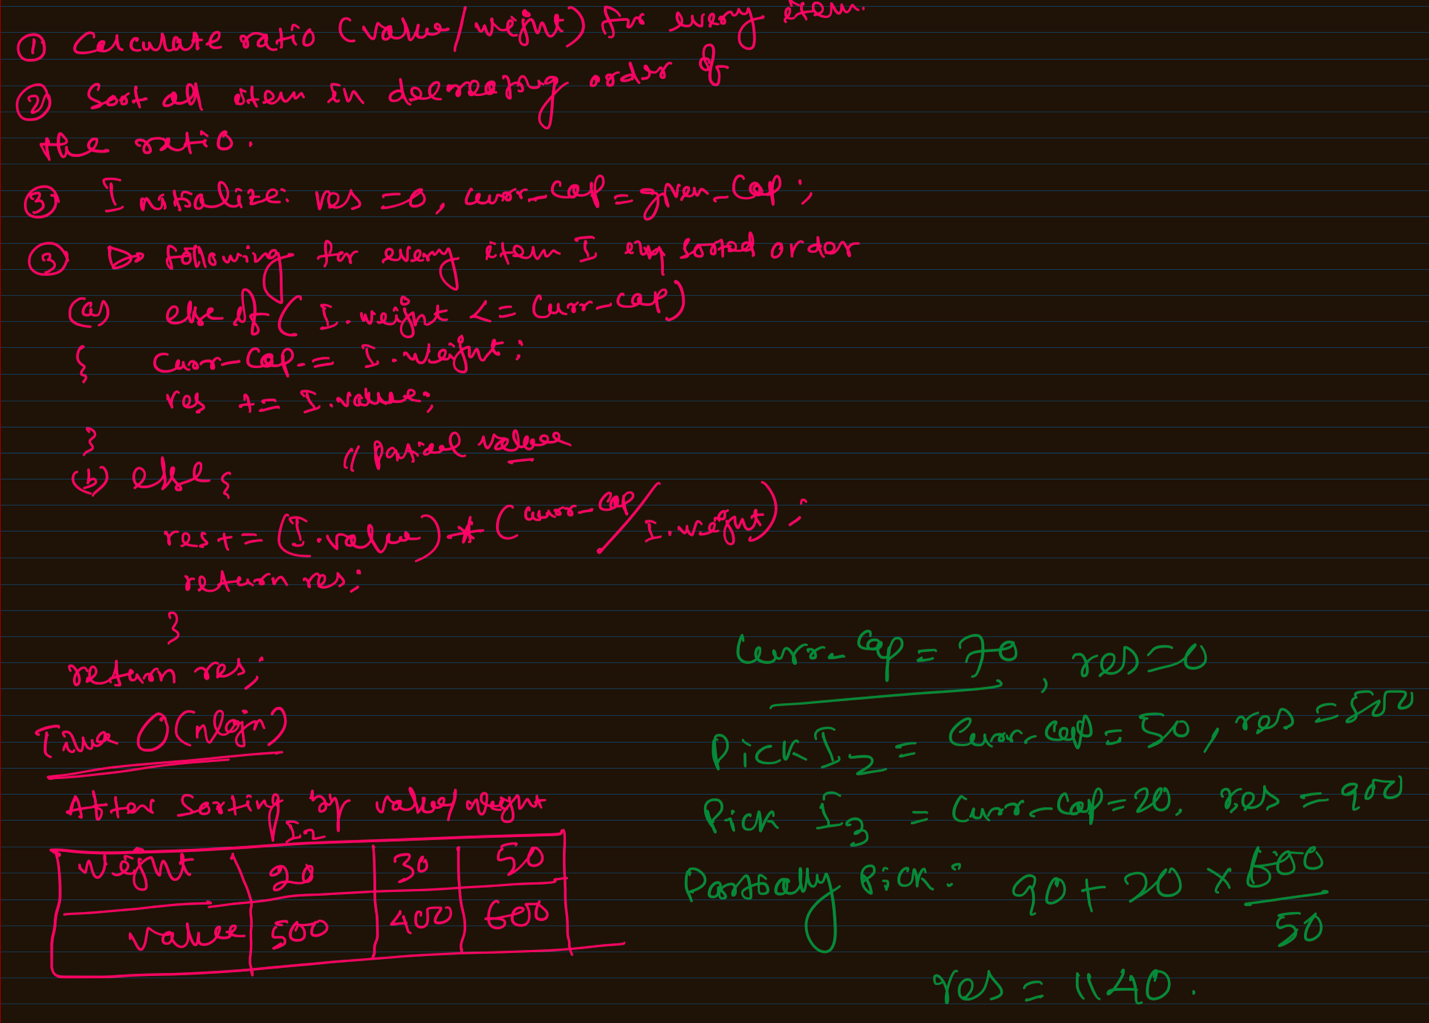 ① Calculate ratio (value/weight) for every item.
② Sort all item in decreasing order of
the ratio.
③ Initialize: res = 0, curr-cap = given-cap;
③ Do following for every item I in sorted order
(a) else if ( I.weight <= Curr-cap)
{ Curr-Cap -= I.weight;
res += I.value;
}
// partial value
(b) else {
res += (I.value) * (curr-cap/I.weight);
return res;
}
return res;
Time O(nlogn)
After Sorting by value/weight
I2
Weight 20 30 50
Value 500 400 600
Curr-Cap = 70, res=0
Pick I2 = Curr-Cap = 50, res = 500
Pick I3 = Curr-Cap = 20, res = 900
Partially Pick: 90 + 20 × 600/50
res = 1140.